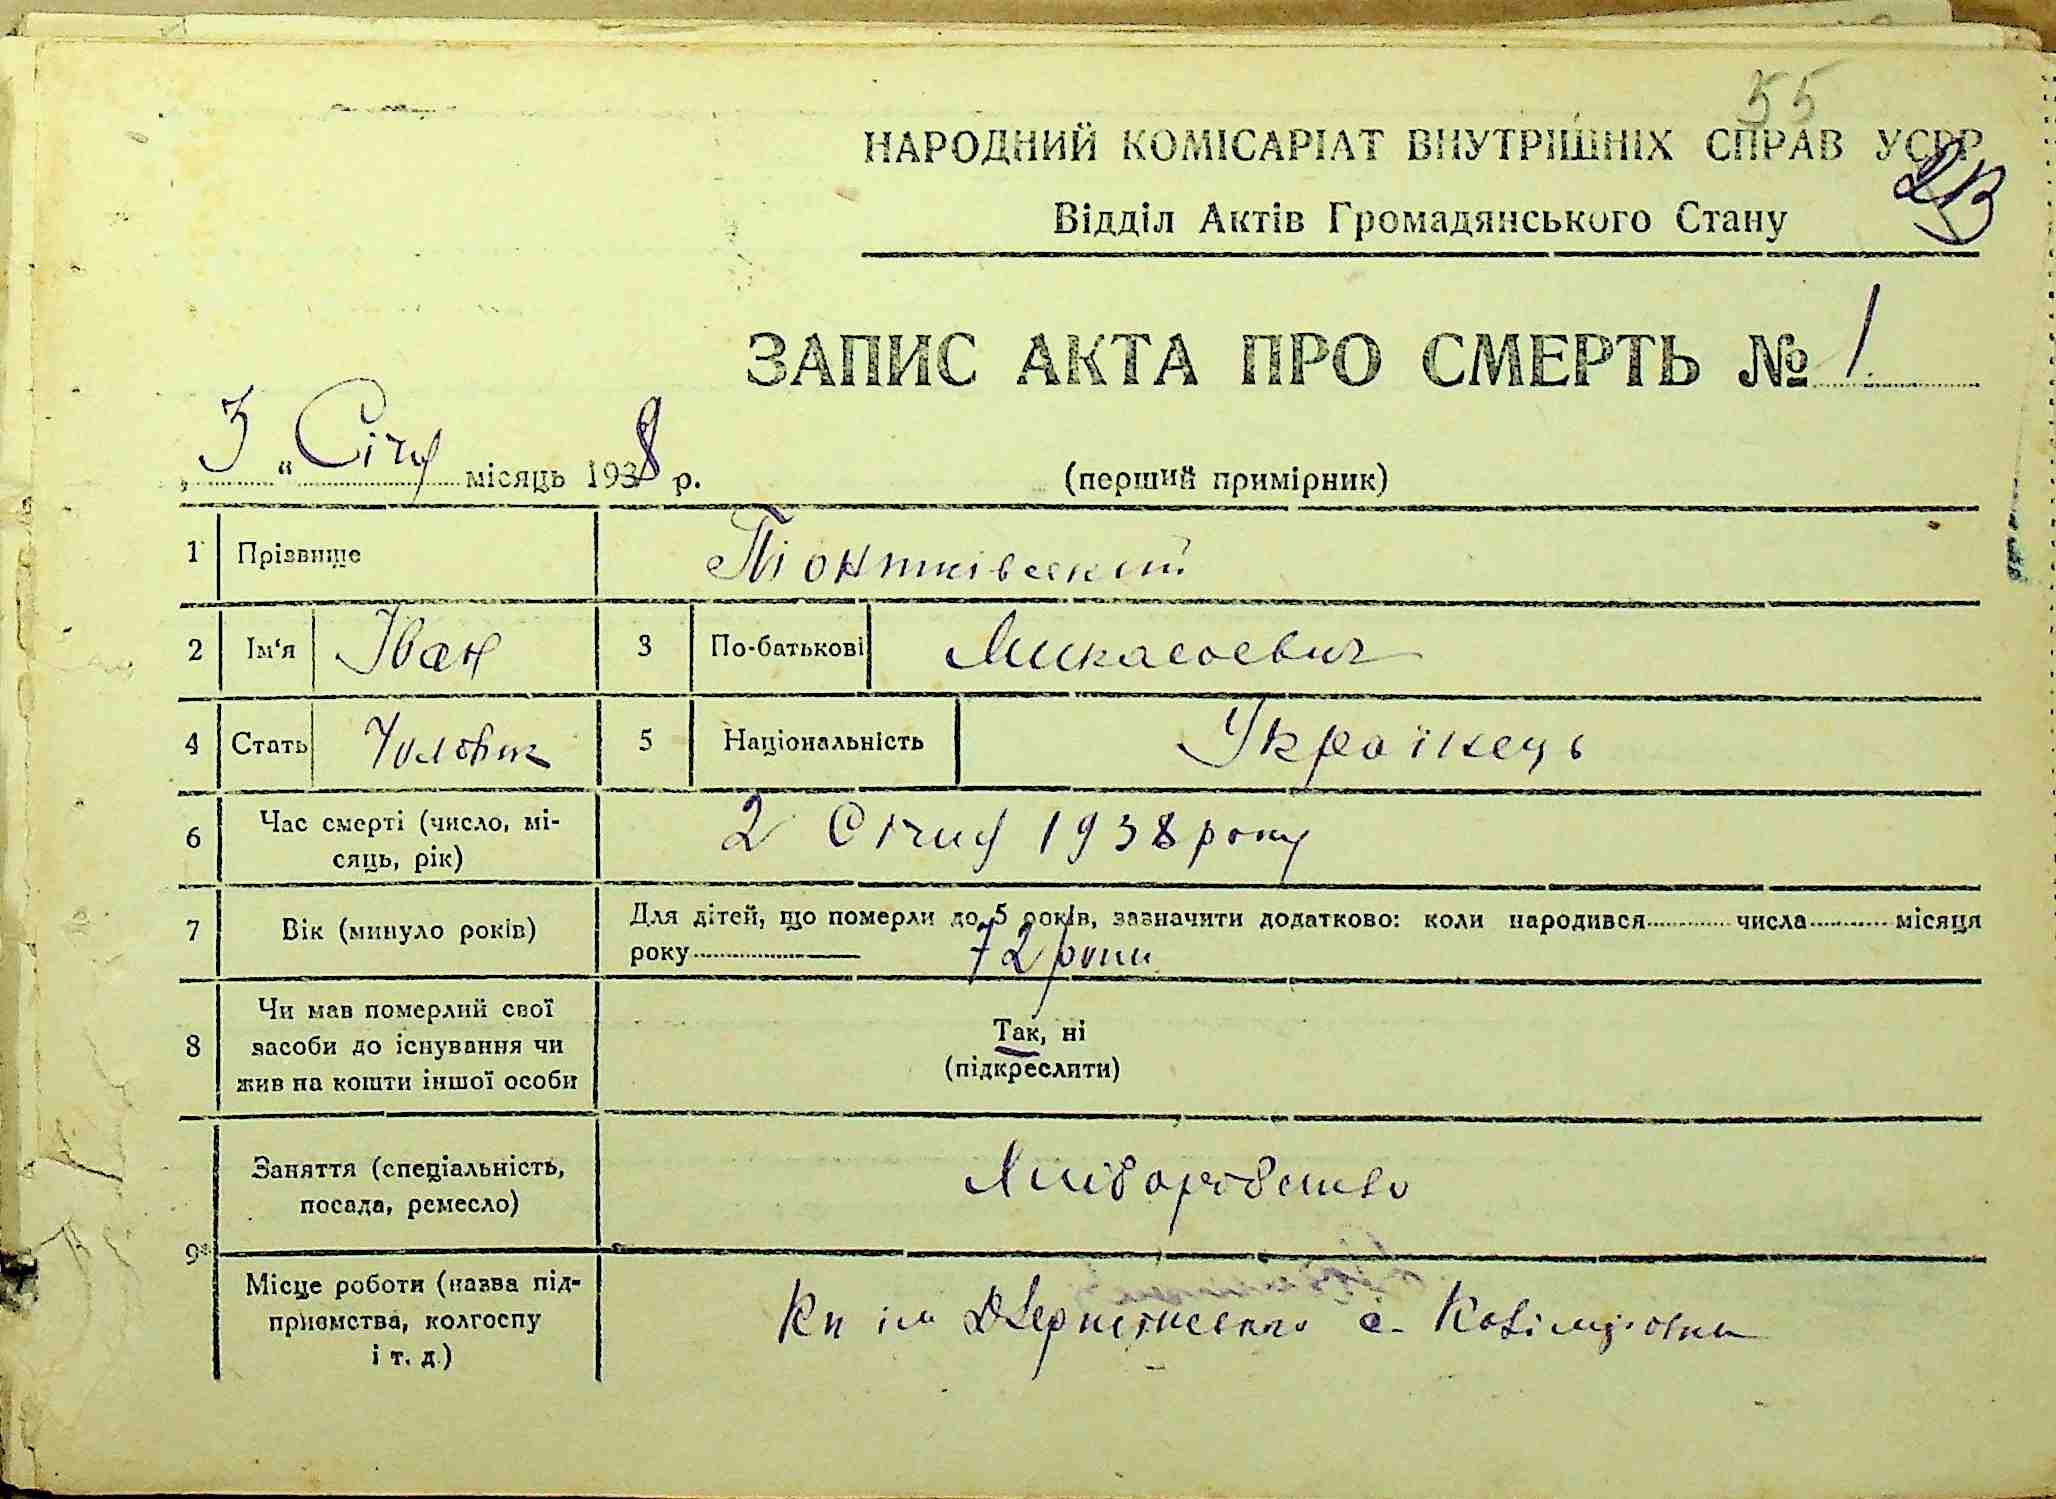 55
НАРОДНИЙ КОМІСАРІАТ ВНУТРІШНІХ СПРАВ УСРР
Відділ Актів Громадянського Стану
ЗАПИС АКТА ПРО СМЕРТЬ № 1
„ 3 “ Січня місяць 1938 р. (перший примірник)
1 Прізвище Піонтківський
2 Ім'я Іван 3 По-батькові Миколаєвич
4 Стать Чоловік 5 Національність Українець
6 Час смерті (число, мі-
сяць, рік) 2 Січня 1938 року
7 Вік (минуло років) Для дітей, що померли до 5 років, зазначити додатково: коли народився числа місяця
року 72 роки
8 Чи мав померлий свої
засоби до існування чи
жив на кошти іншої особи
Так, ні
(підкреслити)
9* Заняття (спеціальність,
посада, ремесло) Хліборобство
Місце роботи (назва під-
приємства, колгоспу
і т. д.) ім Дзержинського с.